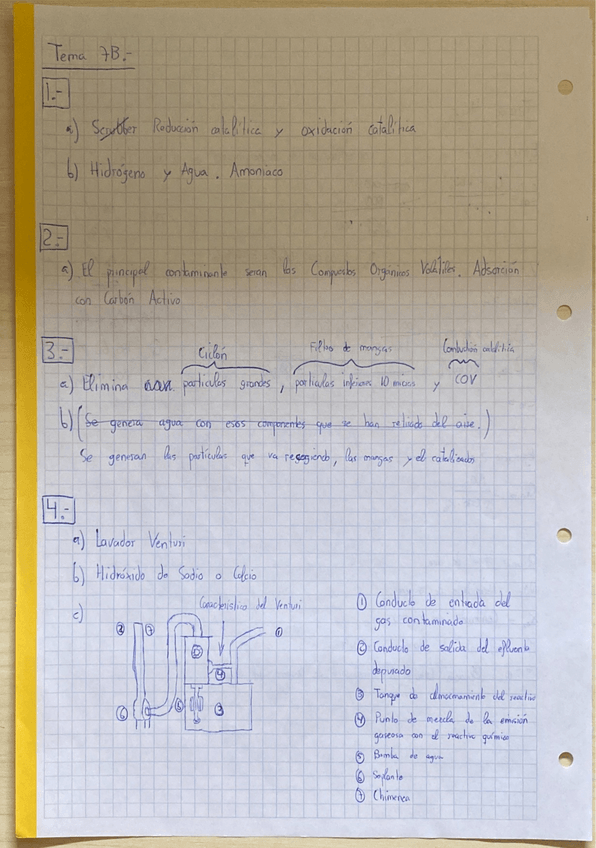 Tema 7B.-
1.-
a) Scrubber Reducción catalítica y oxidación catalítica
b) Hidrógeno y Agua. Amoniaco
2.-
a) El principal contaminante seran los Compuestos Orgánicos Volátiles. Adsorción
con Carbón Activo
3.-
Ciclón Filtros de mangas Combustión catalítica
a) Elimina particulas grandes, particulas inferiores 10 micras y COV
b) (Se genera agua con esos componentes que se han retirado del aire.)
Se generan las partículas que va recogiendo, las mangas y el catalizados
4.-
a) Lavador Venturi
b) Hidróxido de Sodio o Calcio
c)
Característico del Venturi
2 7 5 1
4
6 6 3
1 Conducto de entrada del
gas contaminado
2 Conducto de salida del efluente
depurado
3 Tanque de almacenamiento del reactivo
4 Punto de mezcla de la emisión
gaseosa con el reactivo químico
5 Bomba de agua
6 Soplante
7 Chimenea